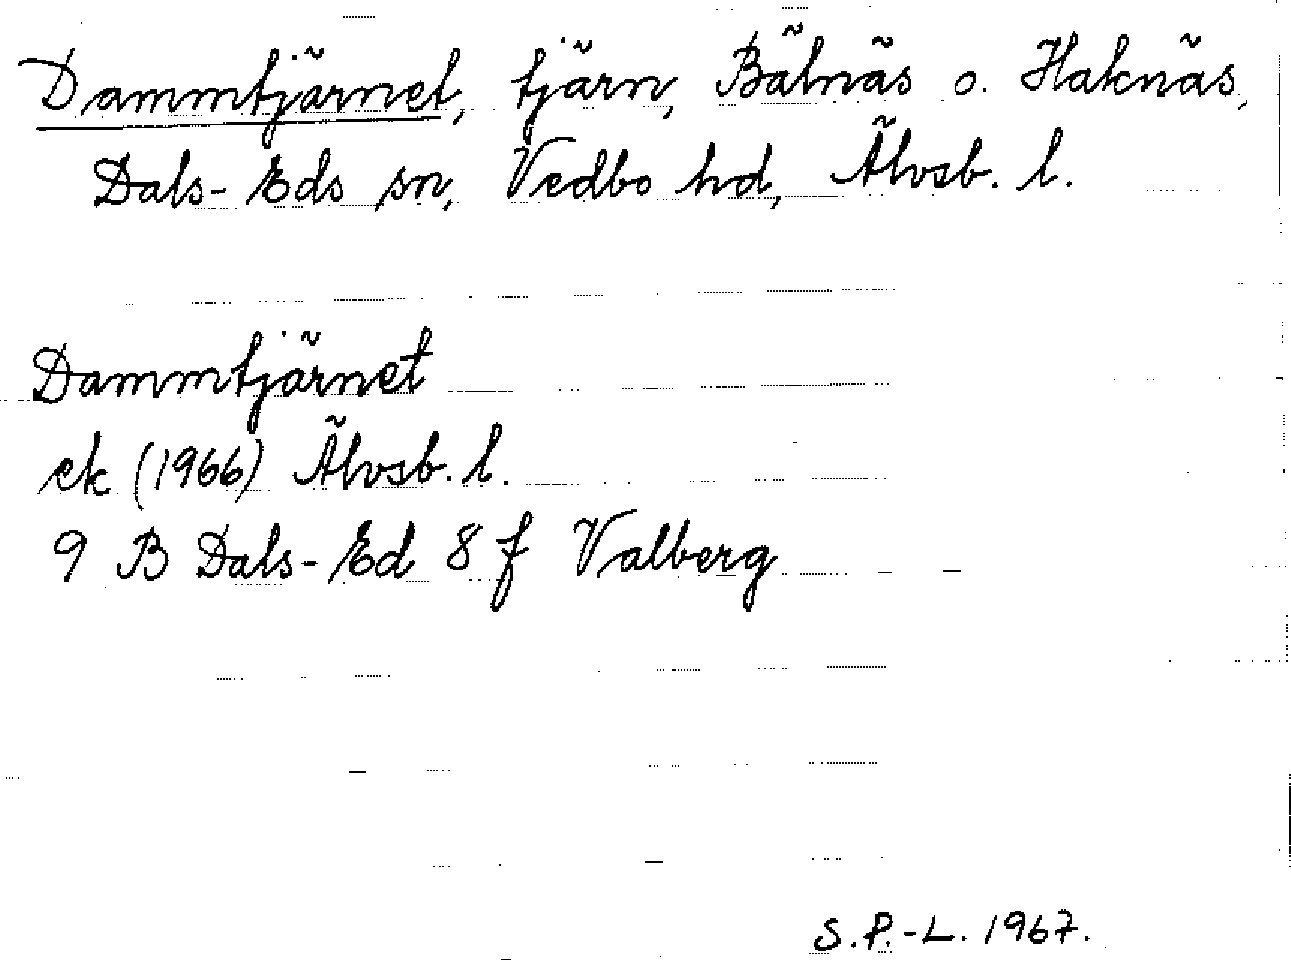 Dammtjärnet, tjärn, Bälnäs o. Haknäs,
Dals-Eds sn, Vedbo hd, Älvsb. l.
Dammtjärnet
ek (1966) Älvsb. l.
9 B Dals-Ed 8 f Valberg
S.P.-L. 1967.